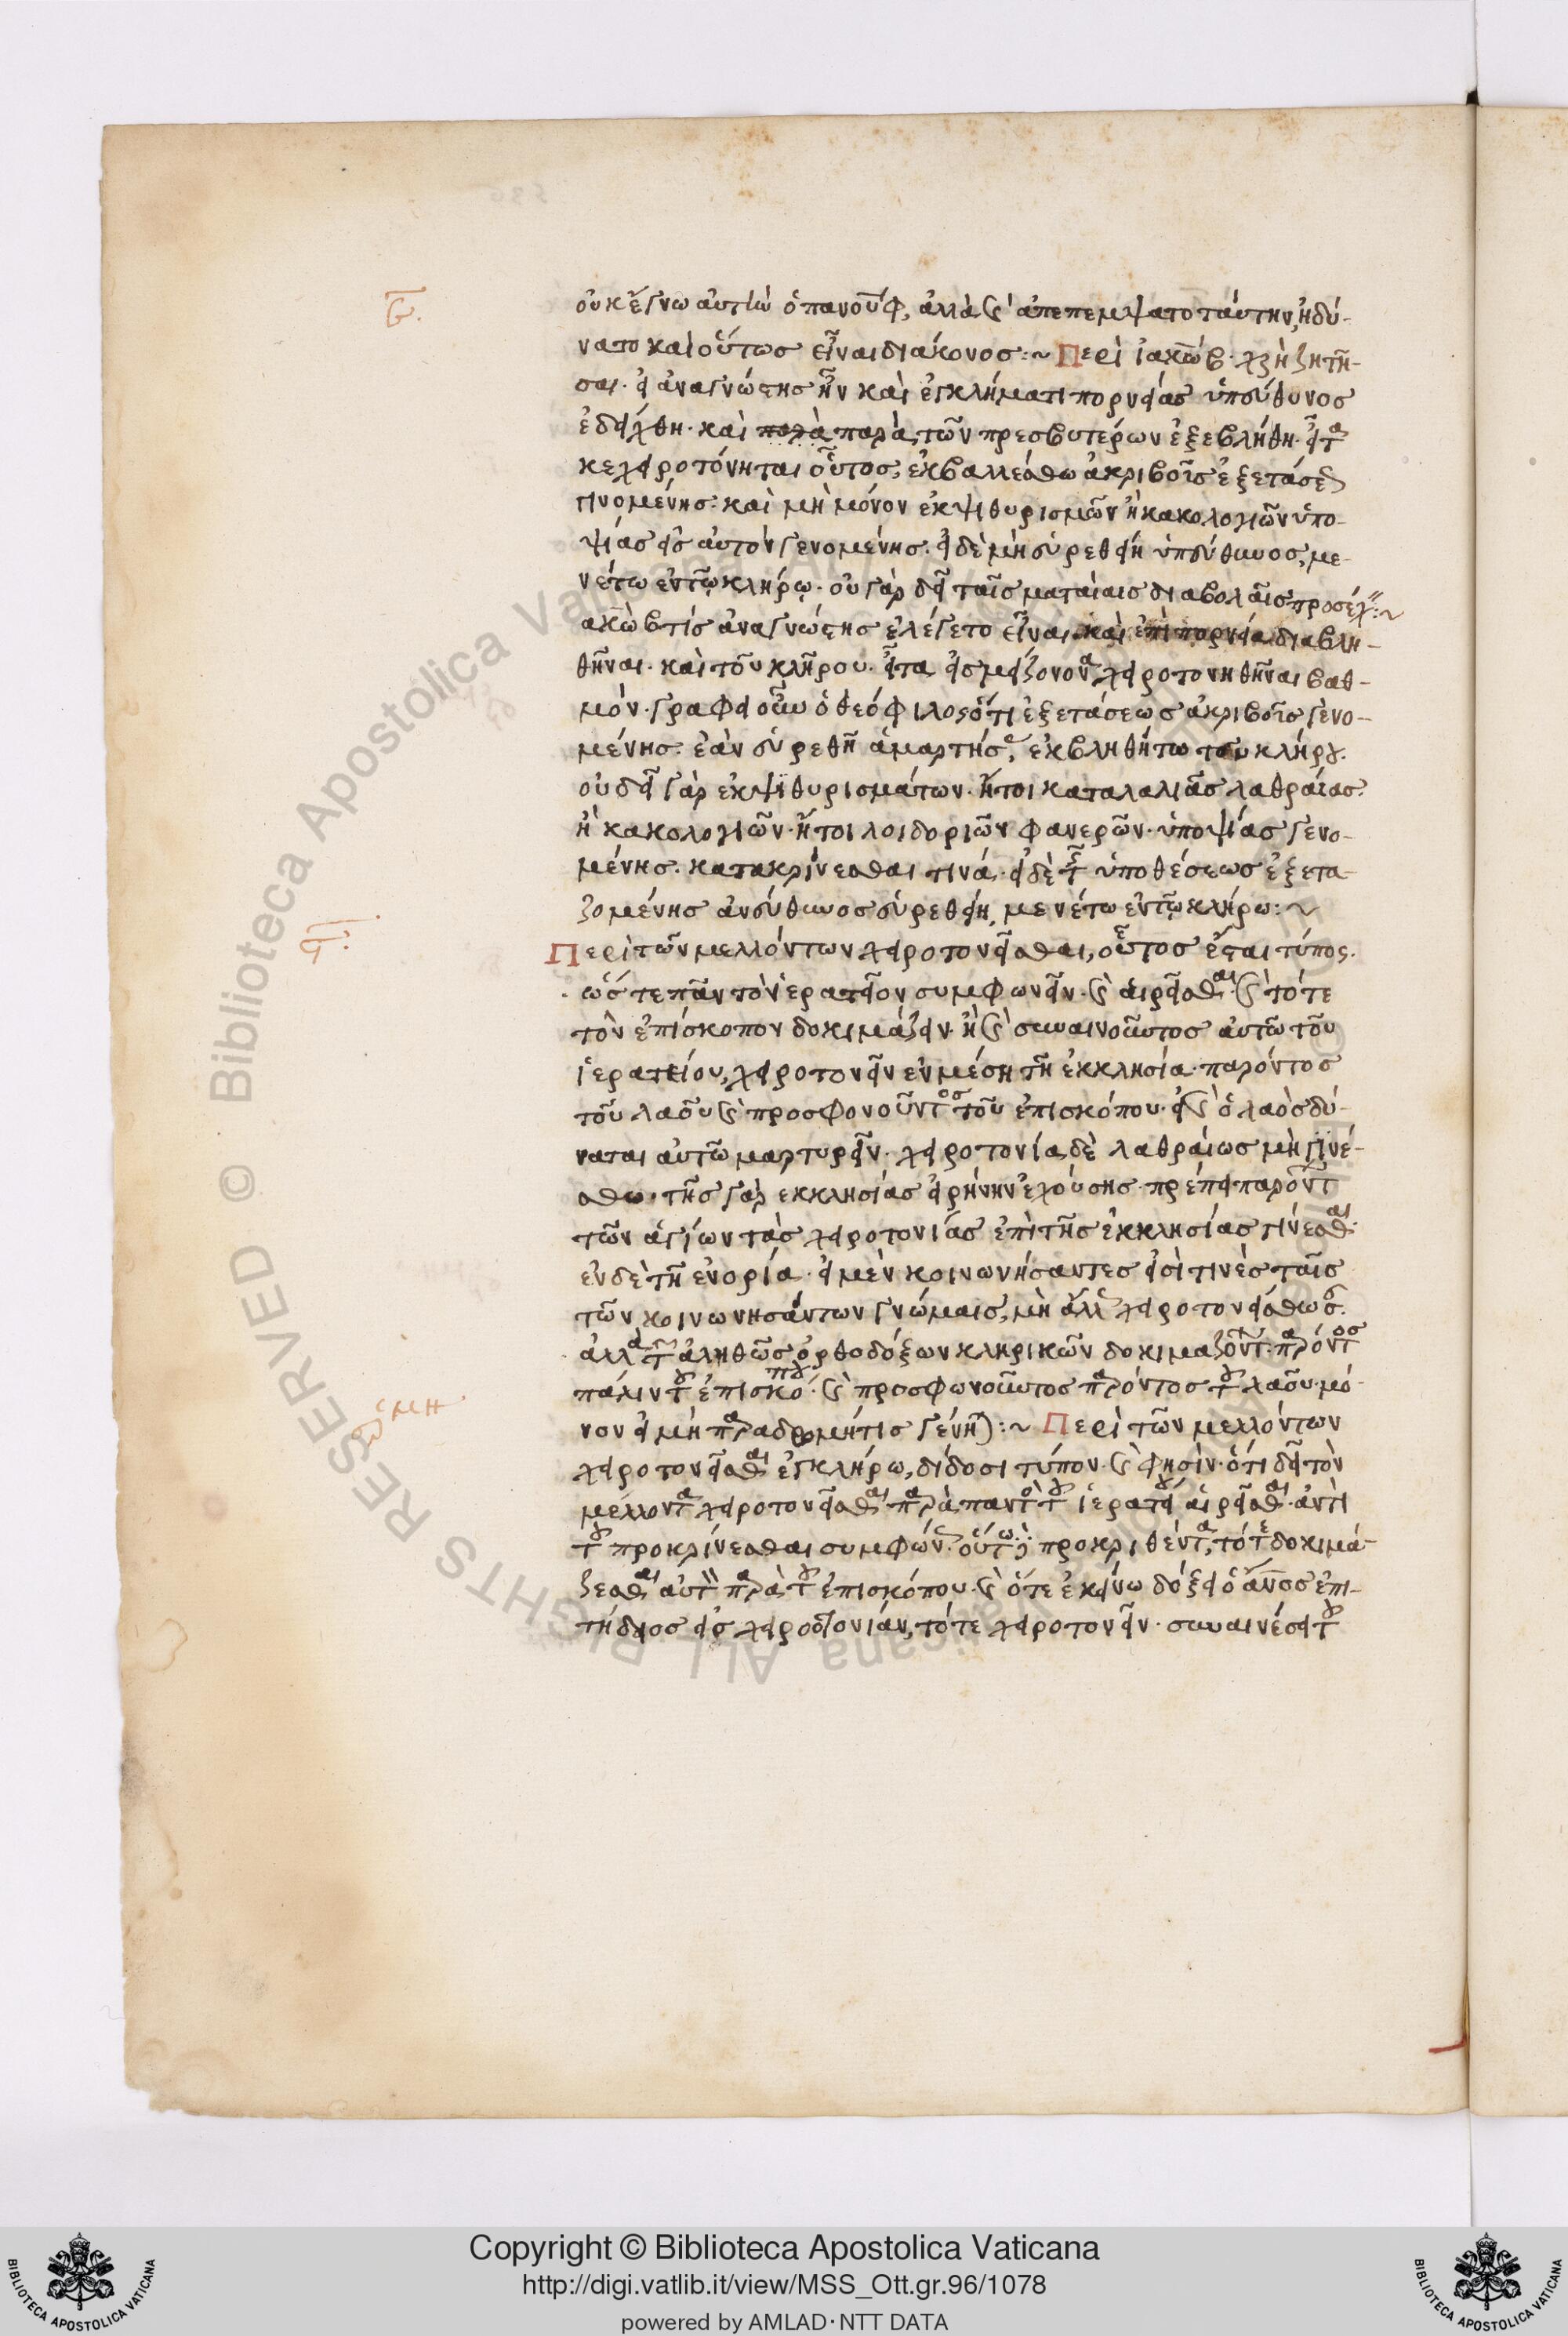 ϛ.
οὐκ ἔγνω αὐτὴν ὁ πανοῦφ, ἀλλὰ καὶ ἀπεπεμψατο ταύτην, ἠδύ-
νατο καὶ οὕτως εἶναι διάκονος :~ Περὶ ἰακὼβ χρὴ ζητῆ-
σαι. εἰ ἀναγνώστης ὢν καὶ ἐγκλήματι πορνείας ὑπεύθυνος
ἐδείχθη. καὶ παρὰ τῶν πρεσβυτέρων ἐξεβλήθη. εἶτα
κεχειροτόνηται οὗτος, ἐκβαλλέσθω ἀκριβοῦς ἐξετάσεως
γινομένης. καὶ μὴ μόνον ἐκ ψιθυρισμῶν ἢ κακολογιῶν ὑπο-
ψίας εἰς αὐτὸν γενομένης. εἰ δὲ μὴ εὑρεθείη ὑπεύθυνος, με-
νέτω ἐν τῷ κλήρῳ. οὐ γὰρ δεῖ ταῖς ματαίαις διαβολαῖς προσέχειν :~
ακὼβ τίς ἀναγνώστης ἐλέγετο εἶναι καὶ ἐπὶ πορνεία διαβλη-
θῆναι. καὶ τοῦ κλήρου. εἶτα εἰς μείζονονα χειροτονηθῆναι βαθ-
μόν. γράφει οὖν ὁ θεόφιλος ὅτι ἐξετάσεως ἀκριβοῦς γενο-
μένης. ἐὰν εὑρεθῆ ἁμαρτήσας, ἐκβληθήτω τοῦ κλήρου.
οὐ δεῖ γὰρ ἐκ ψιθυρισμάτων. ἤτοι καταλαλιᾶς λαθραίας.
ἢ κακολογιῶν. ἤτοι λοιδοριῶν φανερῶν. ὑποψίας γενο-
μένης. κατακρίνεσθαι τινά. εἰ δὲ τῆς ὑποθέσεως ἐξετα-
ζομένης ἀνεύθυνος εὑρεθείη, μενέτω ἐν τῷ κλήρω :~
ζ.
Περὶ τῶν μελλόντων χειροτονεῖσθαι, οὗτος ἔσται τύπος.
ὥστε πᾶν τὸ ἱερατεῖον συμφωνεῖν. καὶ αἱρεῖσθαι. καὶ τότε
τὸν ἐπίσκοπον δοκιμάζειν. ἢ καὶ συναινοῦντος αὐτῶ τοῦ
ἱερατείου, χειροτονεῖν ἐν μέση τῆ ἐκκλησία. παρόντος
τοῦ λαοῦ καὶ προσφονοῦντος τοῦ ἐπισκόπου. εἰ καὶ ὁ λαὸς δύ-
ναται αὐτῶ μαρτυρεῖν. χειροτονία δὲ λαθραίως μὴ γινέ-
σθω. τῆς γὰρ ἐκκλησίας εἰρήνην ἐχούσης. πρέπει παρόντων
τῶν ἁγίων τὰς χειροτονίας ἐπὶ τῆς ἐκκλησίας γίνεσθαι.
ἐν δὲ τῆ ἐνορία. εἰ μὲν κοινωνήσαντες εἰσί τινες ταῖς
τῶν κοινωνησάντων γνώμαις, μὴ ἄλλως χειροτονείσθωσαν.
ἀλλὰ τῶν ἀληθῶς ὀρθοδόξων κληρικῶν δοκιμαζόντων. παρόντος
πάλιν τοῦ ἐπισκόπου. καὶ προσφωνοῦντος παρόντος τοῦ λαοῦ. μό-
ἑρμη
νον εἰ μὴ παραδρομή τις γένηται :~ Περὶ τῶν μελλόντων
χειροτονεῖσθαι ἐγκλήρω, δίδοσι τύπον. καὶ φησίν. ὅτι δεῖ τὸν
μέλλοντα χειροτονεῖσθαι. παρὰ παντὸς τοῦ ἱερατείου αἱρεῖσθαι. ἀντὶ
τοῦ προκρίνεσθαι συμφώνως. οὕτως προκριθέντα, τότε δοκιμά-
ζεσθαι αὐτὸν παρὰ τοῦ ἐπισκόπου. καὶ ὅτε ἐκείνω δόξει ὁ ἄνος ἐπι-
τήδειος εἰς χειροτονίαν, τότε χειροτονεῖν. συναινέσει τοῦ
Copyright © Biblioteca Apostolica Vaticana
http://digi.vatlib.it/view/MSS_Ott.gr.96/1078
powered by AMLAD·NTT DATA
BIBLIOTECA APOSTOLICA VATICANA
BIBLIOTECA APOSTOLICA VATICANA